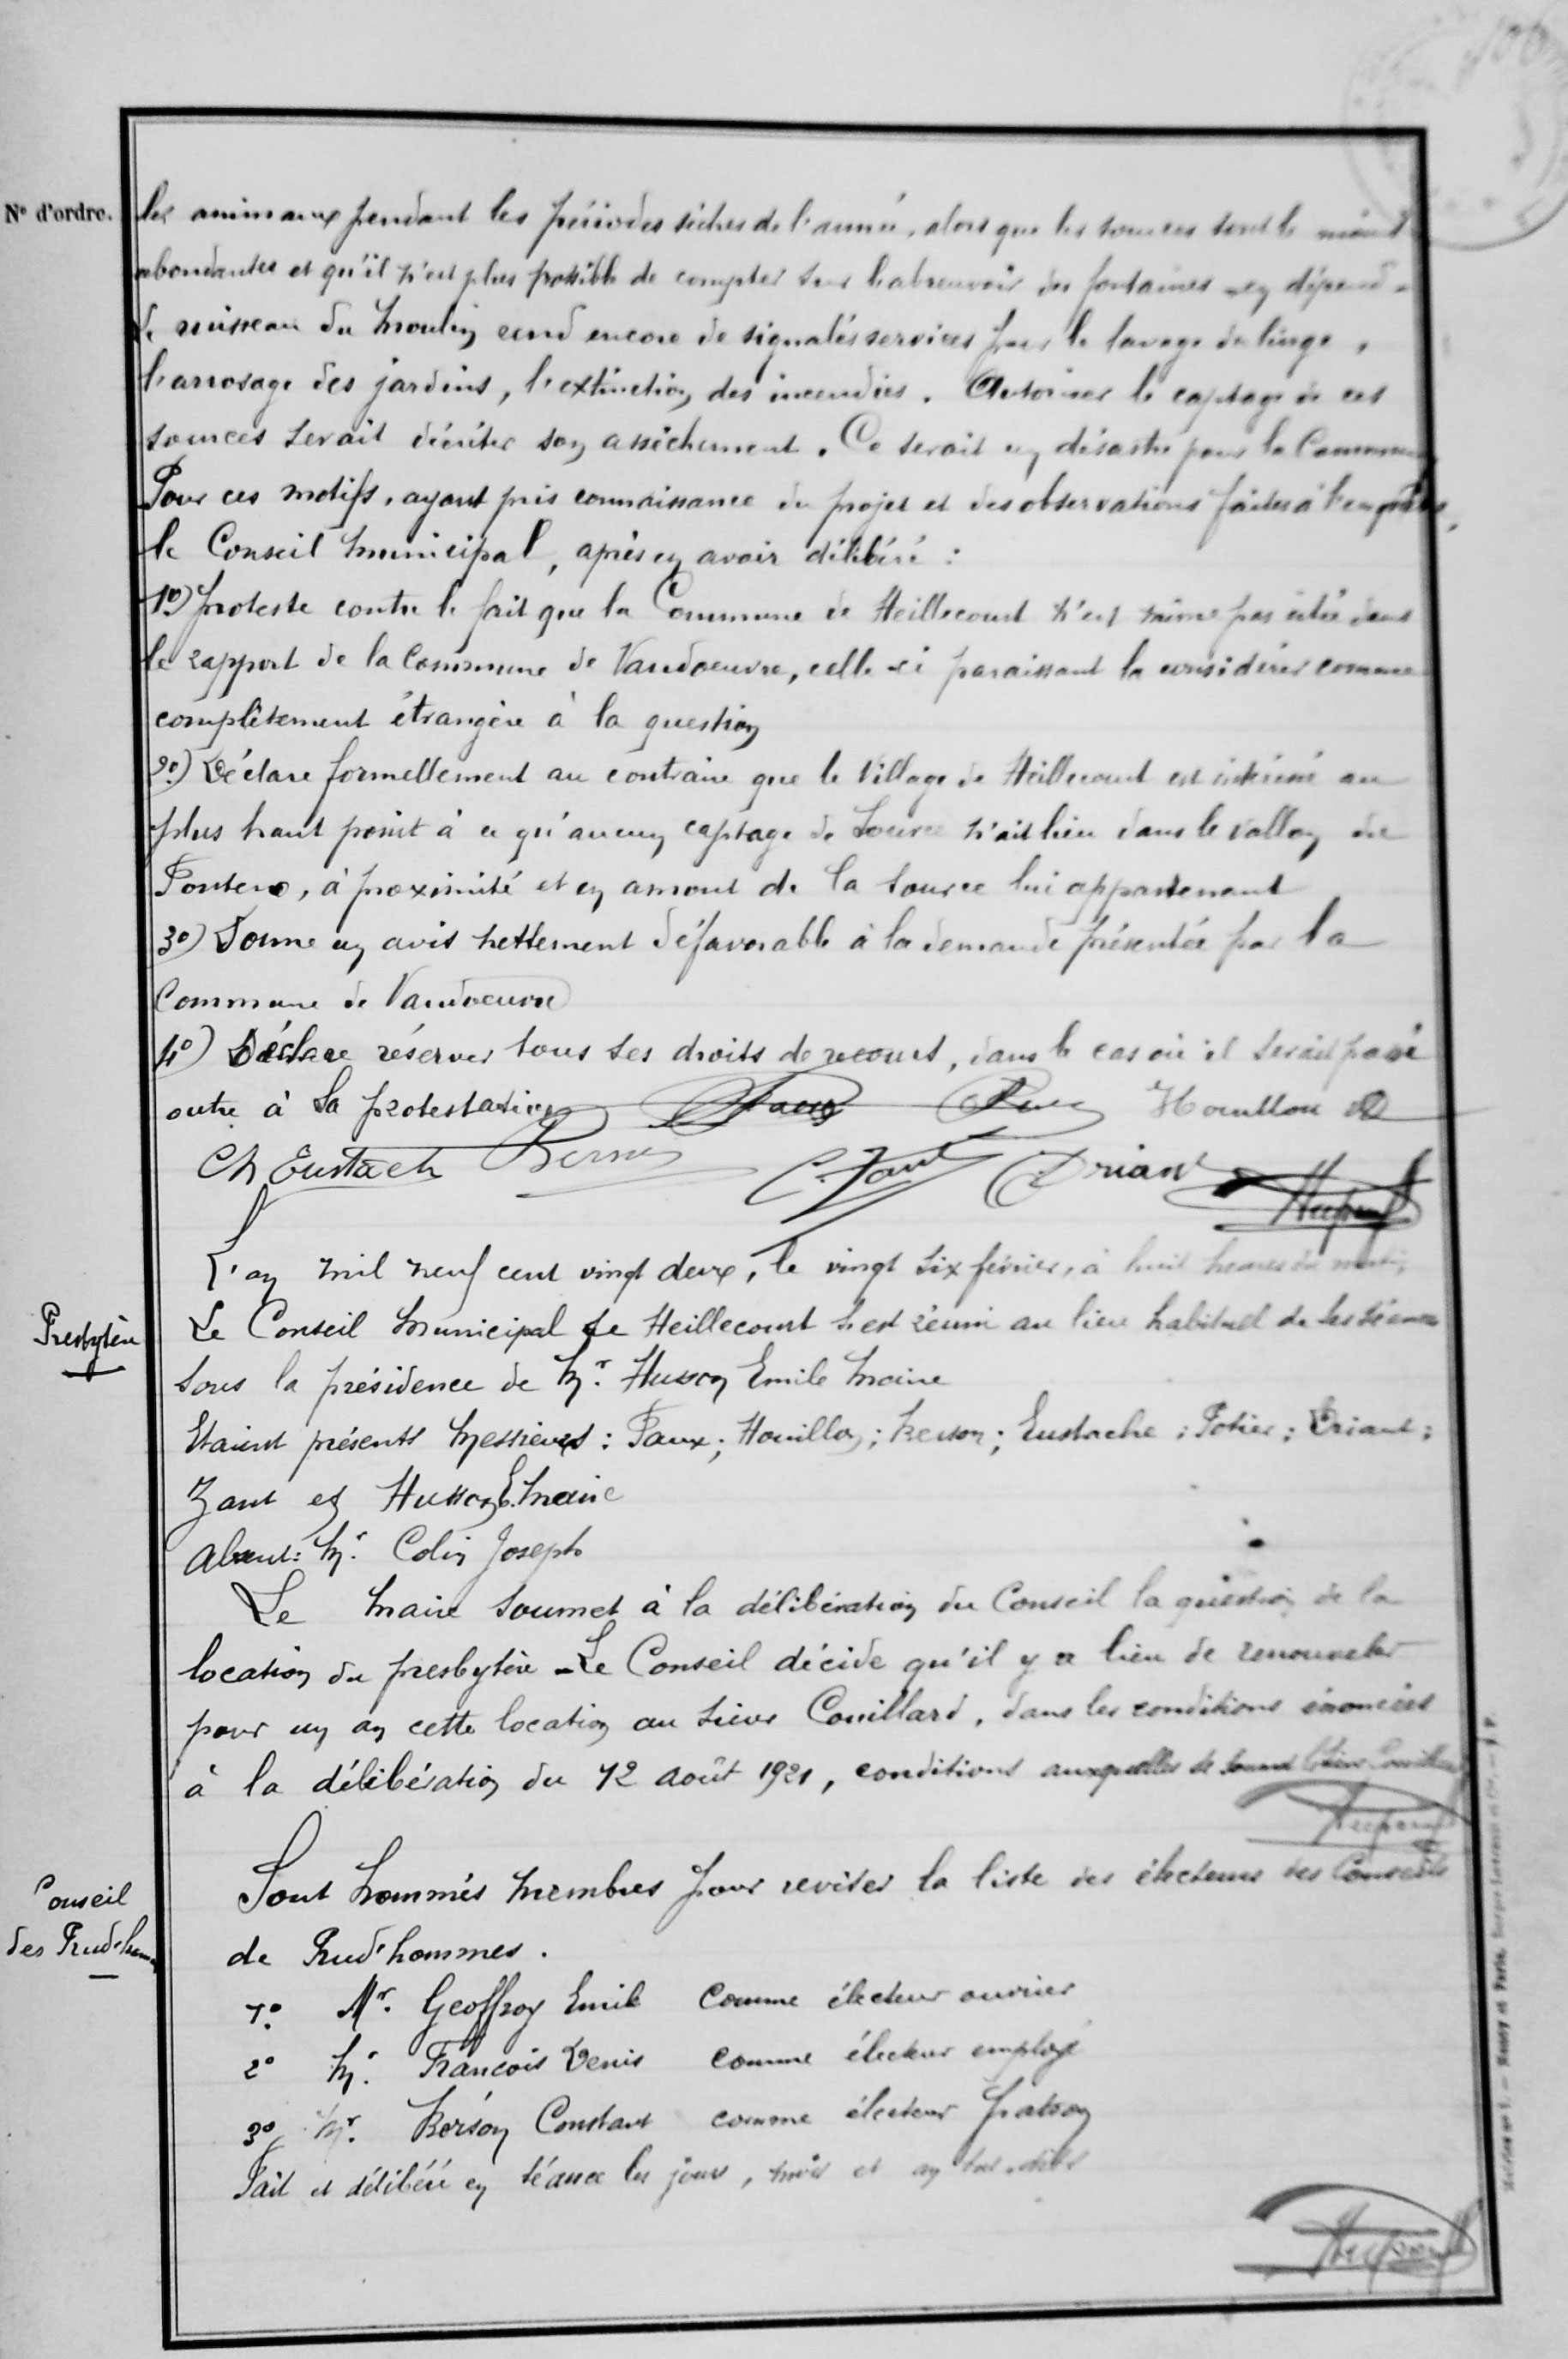 N° d'ordre.
les animaux pendant les périodes sèches de l'année, alors que les sources sont le moins
abondantes et qu'il n'est plus possible de compter sur l'abreuvoir des fontaines
Le ruisseau du Moulin rend encore de signalés services pour le lavage du linge,
l'arrosage des jardins, l'extinction des incendies. Autoriser le captage de ces
sources serait décréter son assèchement. Ce serait un désastre pour la Commune
Pour ces motifs, ayant pris connaissance du projet et des observations faites à l'enquête,
le Conseil Municipal, après en avoir délibéré :
1°) Proteste contre le fait que la Commune de Heillecourt n'est même pas citée dans
le rapport de la Commune de Vandoeuvre, celle-ci paraissant la considérer comme
complètement étrangère à la question
2°) Déclare formellement au contraire que le Village de Heillecourt est intéressé au
plus haut point à ce qu'aucun captage de source n'ait lieu dans le vallon du
Fonteno, à proximité et en amont de la source lui appartenant
3°) Donne un avis nettement défavorable à la demande présentée par la
Commune de Vandoeuvre
4°) Déclare réserver tous ses droits de recours, dans le cas où il serait passé
outre à sa protestation Faux Houillon
Ch Eustach C. Zant Driant
L'an mil neuf cent vingt deux, le vingt six février, à huit heures du matin,
Presbytère
Le Conseil Municipal de Heillecourt s'est réuni au lieu habituel de ses séances
sous la présidence de Mr. Husson Emile Maire
Etaient présents Messieurs : Faux ; Houillon ; Kerson ; Eustache ; Potier ; Driant ;
Zant et Husson E. Maire
Absent : Mr. Colin Joseph
Le Maire soumet à la délibération du Conseil la question de la
location du presbytère - Le Conseil décide qu'il y a lieu de renouveler
pour un an cette location au sieur Couillard, dans les conditions énoncées
à la délibération du 12 août 1921, conditions auxquelles se soumet le sieur Couillard
Conseil
des Prud'hommes
Sont nommés membres pour reviser la liste des électeurs des Conseils
de Prud'hommes.
1° Mr. Geoffroy Emile comme électeur ouvrier
2° Mr. François Denis comme électeur employé
3° Mr. Kerson Constant comme électeur patron
Fait et délibéré en séance les jour, mois et an sus-dits